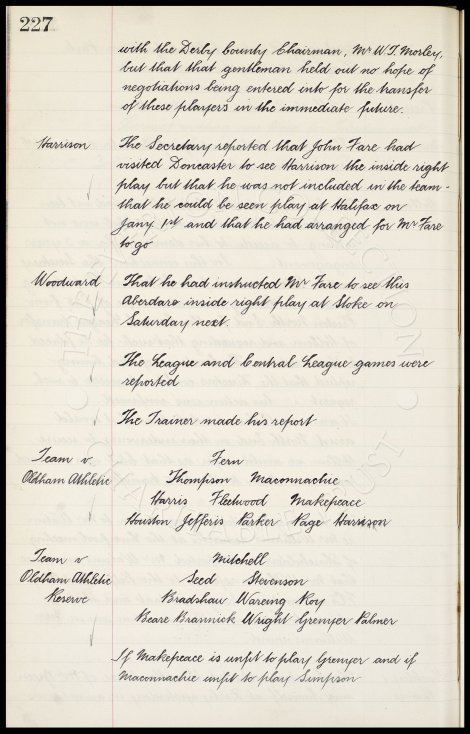 227
with the Derby County Chairman, Mr W.T. Morley,
but that that gentleman held out no hope of
negotiations being entered into for the transfer
of these players in the immediate future.
Harrison The Secretary reported that John Fare had
visited Doncaster to see Harrison the inside right
play but that he was not included in the team -
that he could be seen play at Halifax on
Jany 1st and that he had arranged for Mr Fare
to go
Woodward That he had instructed Mr Fare to see this
Aberdare inside right play at Stoke on
Saturday next.
The League and Central League games were
reported
The Trainer made his report
Team v Fern
Oldham Athletic Thompson Maconnachie
Harris Fleetwood Makepeace
Houston Jefferis Parker Page Harrison
Team v Mitchell
Oldham Athletic Seed Stevenson
Reserve Bradshaw Wareing Roy
Beare Brannick Wright Grenyer Palmer
If Makepeace is unfit to play Grenyer and if
Maconnachie unfit to play Simpson